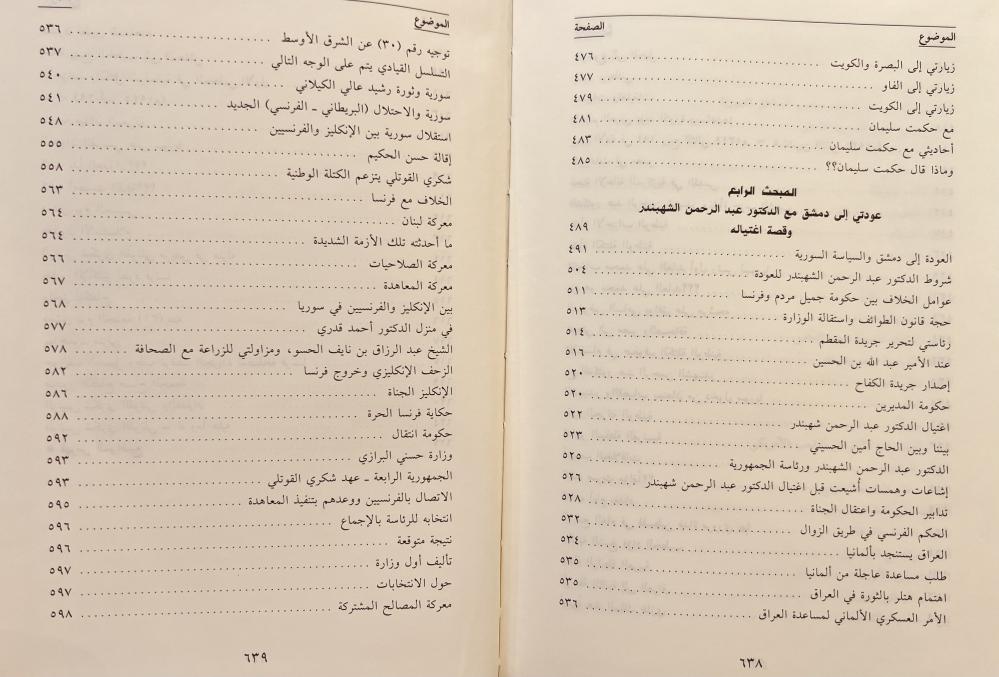 الموضوع الصفحة
زيارتي إلى البصرة والكويت ٤٧٦
زيارتي إلى الفاو ٤٧٧
زيارتي إلى الكويت ٤٧٩
مع حكمت سليمان ٤٨١
أحاديثي مع حكمت سليمان ٤٨٣
وماذا قال حكمت سليمان؟؟ ٤٨٥
المبحث الرابع
عودتي إلى دمشق مع الدكتور عبد الرحمن الشهبندر
وقصة اغتياله ٤٨٩
العودة إلى دمشق والسياسة السورية ٤٩١
شروط الدكتور عبد الرحمن الشهبندر للعودة ٥٠٤
عوامل الخلاف بين حكومة جميل مردم وفرنسا ٥١١
حجة قانون الطوائف واستقالة الوزارة ٥١٣
رئاستي لتحرير جريدة المقطم ٥١٤
عند الأمير عبد الله بن الحسين ٥١٦
إصدار جريدة الكفاح ٥٢٠
حكومة المديرين ٥٢٠
اغتيال الدكتور عبد الرحمن شهبندر ٥٢٢
بيننا وبين الحاج أمين الحسيني ٥٢٣
الدكتور عبد الرحمن الشهبندر ورئاسة الجمهورية ٥٢٥
إشاعات وهمسات أُشيعت قبل اغتيال الدكتور عبد الرحمن شهبندر ٥٢٦
تدابير الحكومة واعتقال الجناة ٥٢٨
الحكم الفرنسي في طريق الزوال ٥٣٢
العراق يستنجد بألمانيا ٥٣٤
طلب مساعدة عاجلة من ألمانيا ٥٣٥
اهتمام هتلر بالثورة في العراق ٥٣٥
الأمر العسكري الألماني لمساعدة العراق ٥٣٦
٦٣٨
الموضوع
توجيه رقم (٣٠) عن الشرق الأوسط ٥٣٦
التسلسل القيادي يتم على الوجه التالي ٥٣٧
سورية وثورة رشيد عالي الكيلاني ٥٤٠
سورية والاحتلال (البريطاني ـ الفرنسي) الجديد ٥٤١
استقلال سورية بين الإنكليز والفرنسيين ٥٤٨
إقالة حسن الحكيم ٥٥٥
شكري القوتلي يتزعم الكتلة الوطنية ٥٥٨
الخلاف مع فرنسا ٥٦٣
معركة لبنان ٥٦٤
ما أحدثته تلك الأزمة الشديدة ٥٦٤
معركة الصلاحيات ٥٦٦
معركة المعاهدة ٥٦٧
بين الإنكليز والفرنسيين في سوريا ٥٦٨
في منزل الدكتور أحمد قدري ٥٧٧
الشيخ عبد الرزاق بن نايف الحسو، ومزاولتي للزراعة مع الصحافة ٥٧٨
الزحف الإنكليزي وخروج فرنسا ٥٨٢
الإنكليز الجناة ٥٨٦
حكاية فرنسا الحرة ٥٨٨
حكومة انتقال ٥٩٢
وزارة حسني البرازي ٥٩٣
الجمهورية الرابعة ـ عهد شكري القوتلي ٥٩٣
الاتصال بالفرنسيين ووعدهم بتنفيذ المعاهدة ٥٩٥
انتخابه للرئاسة بالإجماع ٥٩٦
نتيجة متوقعة ٥٩٦
تأليف أول وزارة ٥٩٧
حول الانتخابات ٥٩٧
معركة المصالح المشتركة ٥٩٨
٦٣٩